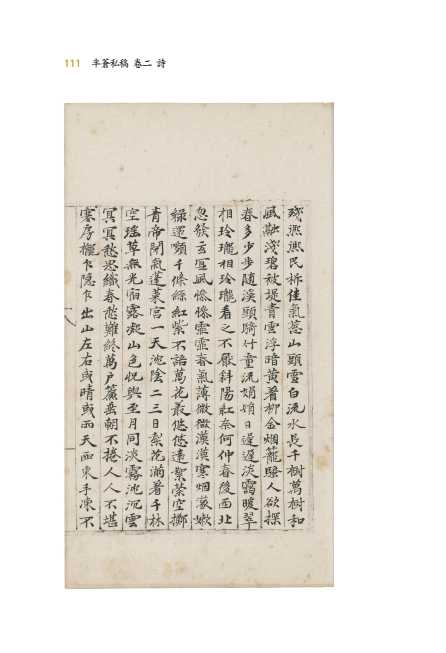 111 半蒼私稿 卷二 詩
殘燕燕民柝佳氣蔥山頭雪白流水長千樹萬樹和
風融淺碧被堤青雲浮暗黃着柳金烟籠人欲探
春多少步隨溪頭騎竹童流娟娟日遲遲淡靄暖翠
相玲瓏相玲瓏看之不厭斜陽紅奈何仲春後西北
忽發玄冥風慘慘霏霏春氣薄微微漠漠寒烟蒙嫩
綠還嚬千條綠紅紫不語萬花最低低遠絮縈空擲
青帝開氣蓬萊宮一天沈陰二三日梨花滿着千林
空瑤草無光宿露凝山色恍與玉月同淡霧沈沉雲
冥冥愁思織春愁難終萬戶簾垂朝不捲人人不堪
寒房櫳乍隱乍出山左右或晴或雨天西東手凍不